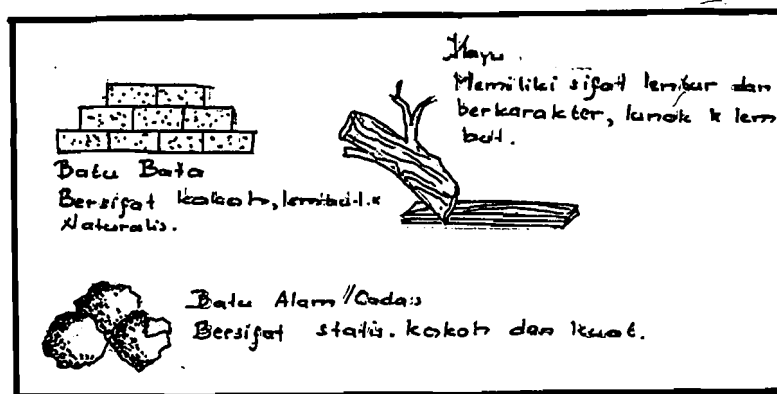 Kayu.
Memiliki sifat lentur dan
berkarakter, lunak & lem
but.
Batu Bata
Bersifat kokoh, lembut &
Naturalis.
Batu Alam//Cadas
Bersifat statis. kokoh dan kuat.